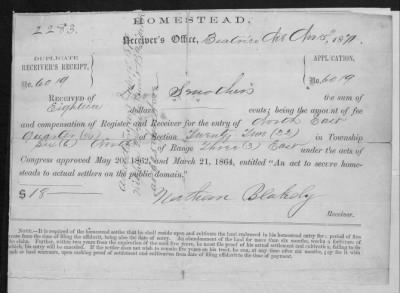 2283.
HOMESTEAD.
Receiver's Office, Beatrice
DUPLICATE
RECEIVER'S RECEIPT,
No. 6019
APPLICATION,
No. 6019
RECEIVED OF the sum of
Eighteen dollars cents; being the amount of fee
and compensation of Register and Receiver for the entry of North East
Quarter of Section Twenty Two (22) in Township
of Range Three (3) East under the acts of
Congress approved May 20, 1862, and March 21, 1864, entitled "An act to secure home-
steads to actual settlers on the public domain."
$ 18
Nathan Blakely
Receiver.
NOTE.—It is required of the homestead settler that he shall reside upon and cultivate the land embraced in his homestead entry for a period of five
years from the time of filing the affidavit, being also the date of entry. An abandonment of the land for more than six months, works a forfeiture of
the claim. Further, within two years from the expiration of the said five years, he must file proof of his actual settlement and cultivation, failing to do
which, his entry will be canceled. If the settler does not wish to remain five years on his tract, he can, at any time after six months, pay for it with
cash or land warrants, upon making proof of settlement and cultivation from date of filing affidavit to the time of payment.